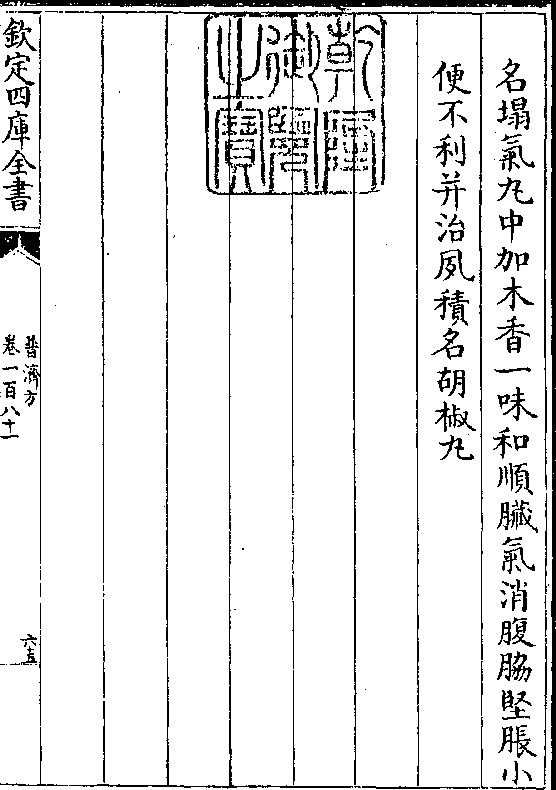 名塌氣丸中加木香一味和順臟氣消腹脇堅脹小
便不利并治夙積名胡椒丸
乾隆御覽之寶
欽定四庫全書
普濟方
卷一百八十一
六十五